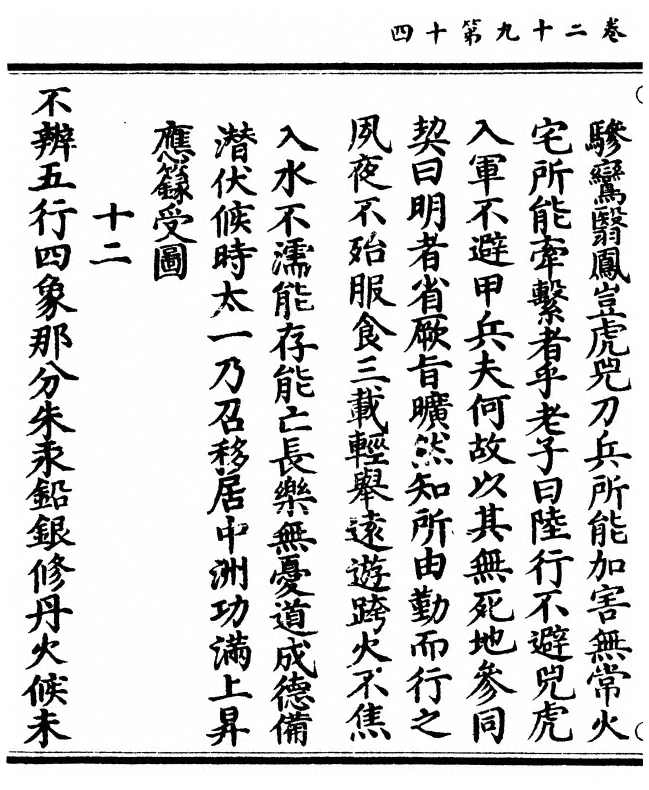 卷二十九第十四
驂鸞翳鳳豈虎兕刀兵所能加害無常火
宅所能牽繫者乎老子曰陸行不避兕虎
入軍不避甲兵夫何故以其無死地參同
契曰明者省厥旨曠然知所由勤而行之
夙夜不殆服食三載輕舉遠遊跨火不焦
入水不濡能存能亡長樂無憂道成德備
潛伏候時太一乃召移居中洲功滿上昇
應籙受圖
十二
不辨五行四象那分朱汞鉛銀修丹火候未